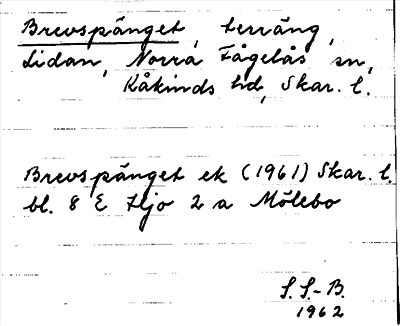 Brevspånget, terräng,
Lidan, Norra Fågelås sn,
Kåkinds hd, Skar. l.
Brevspånget ek (1961) Skar. l.
bl. 8 E Hjo 2 a Mölebo
S. S.-B.
1962